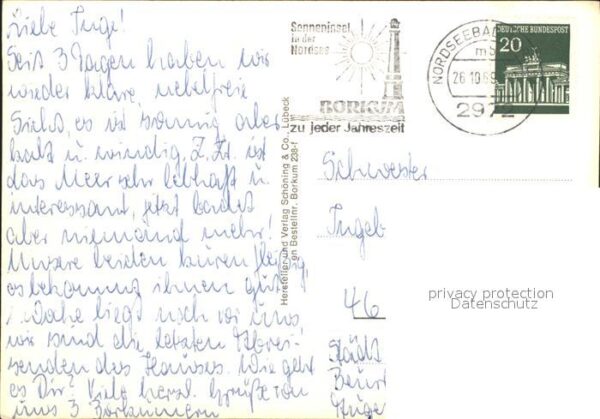 Liebe Inge!
Seit 3 Tagen haben wir
wieder klare, nebelfreie
Sicht, es ist sonnig aber
kalt u. windig. Z. Zt. ist
das Meer sehr lebhaft u.
interessant, jetzt badet
aber niemand mehr!
Unsere beiden kuren fleißig,
es bekommt ihnen gut,
1 Woche liegt noch vor uns
wir sind die letzten Abrei-
senden des Hauses. Wie geht
es Dir? Viele herzl. Grüße von
uns 3 Borkumern
Sonneninsel
in der
Nordsee
BORKUM
zu jeder Jahreszeit
NORDSEEBA
26.10.69
2972
DEUTSCHE BUNDESPOST
20
Hersteller und Verlag Schöning & Co., Lübeck
Bestellnr. Borkum 238-f
Schwester
Ingeb
46
Städt
privacy protection
Datenschutz